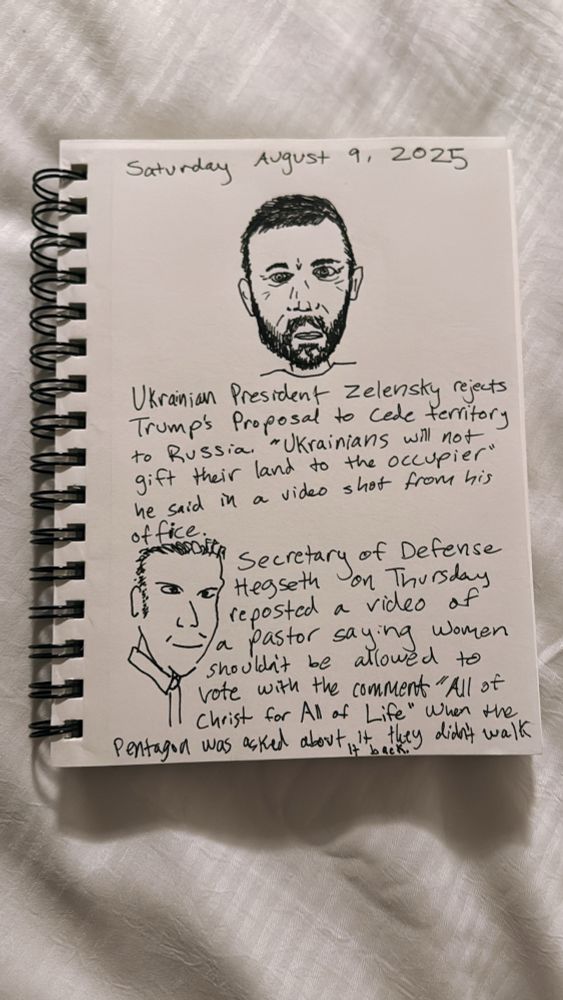 Saturday August 9, 2025
Ukrainian President Zelensky rejects
Trump's Proposal to cede territory
to Russia. "Ukrainians will not
gift their land to the occupier"
he said in a video shot from his
office.
Secretary of Defense
Hegseth on Thursday
reposted a video of
a pastor saying women
shouldn't be allowed to
vote with the comment "All of
Christ for All of Life" When the
Pentagon was asked about it they didn't walk
it back.